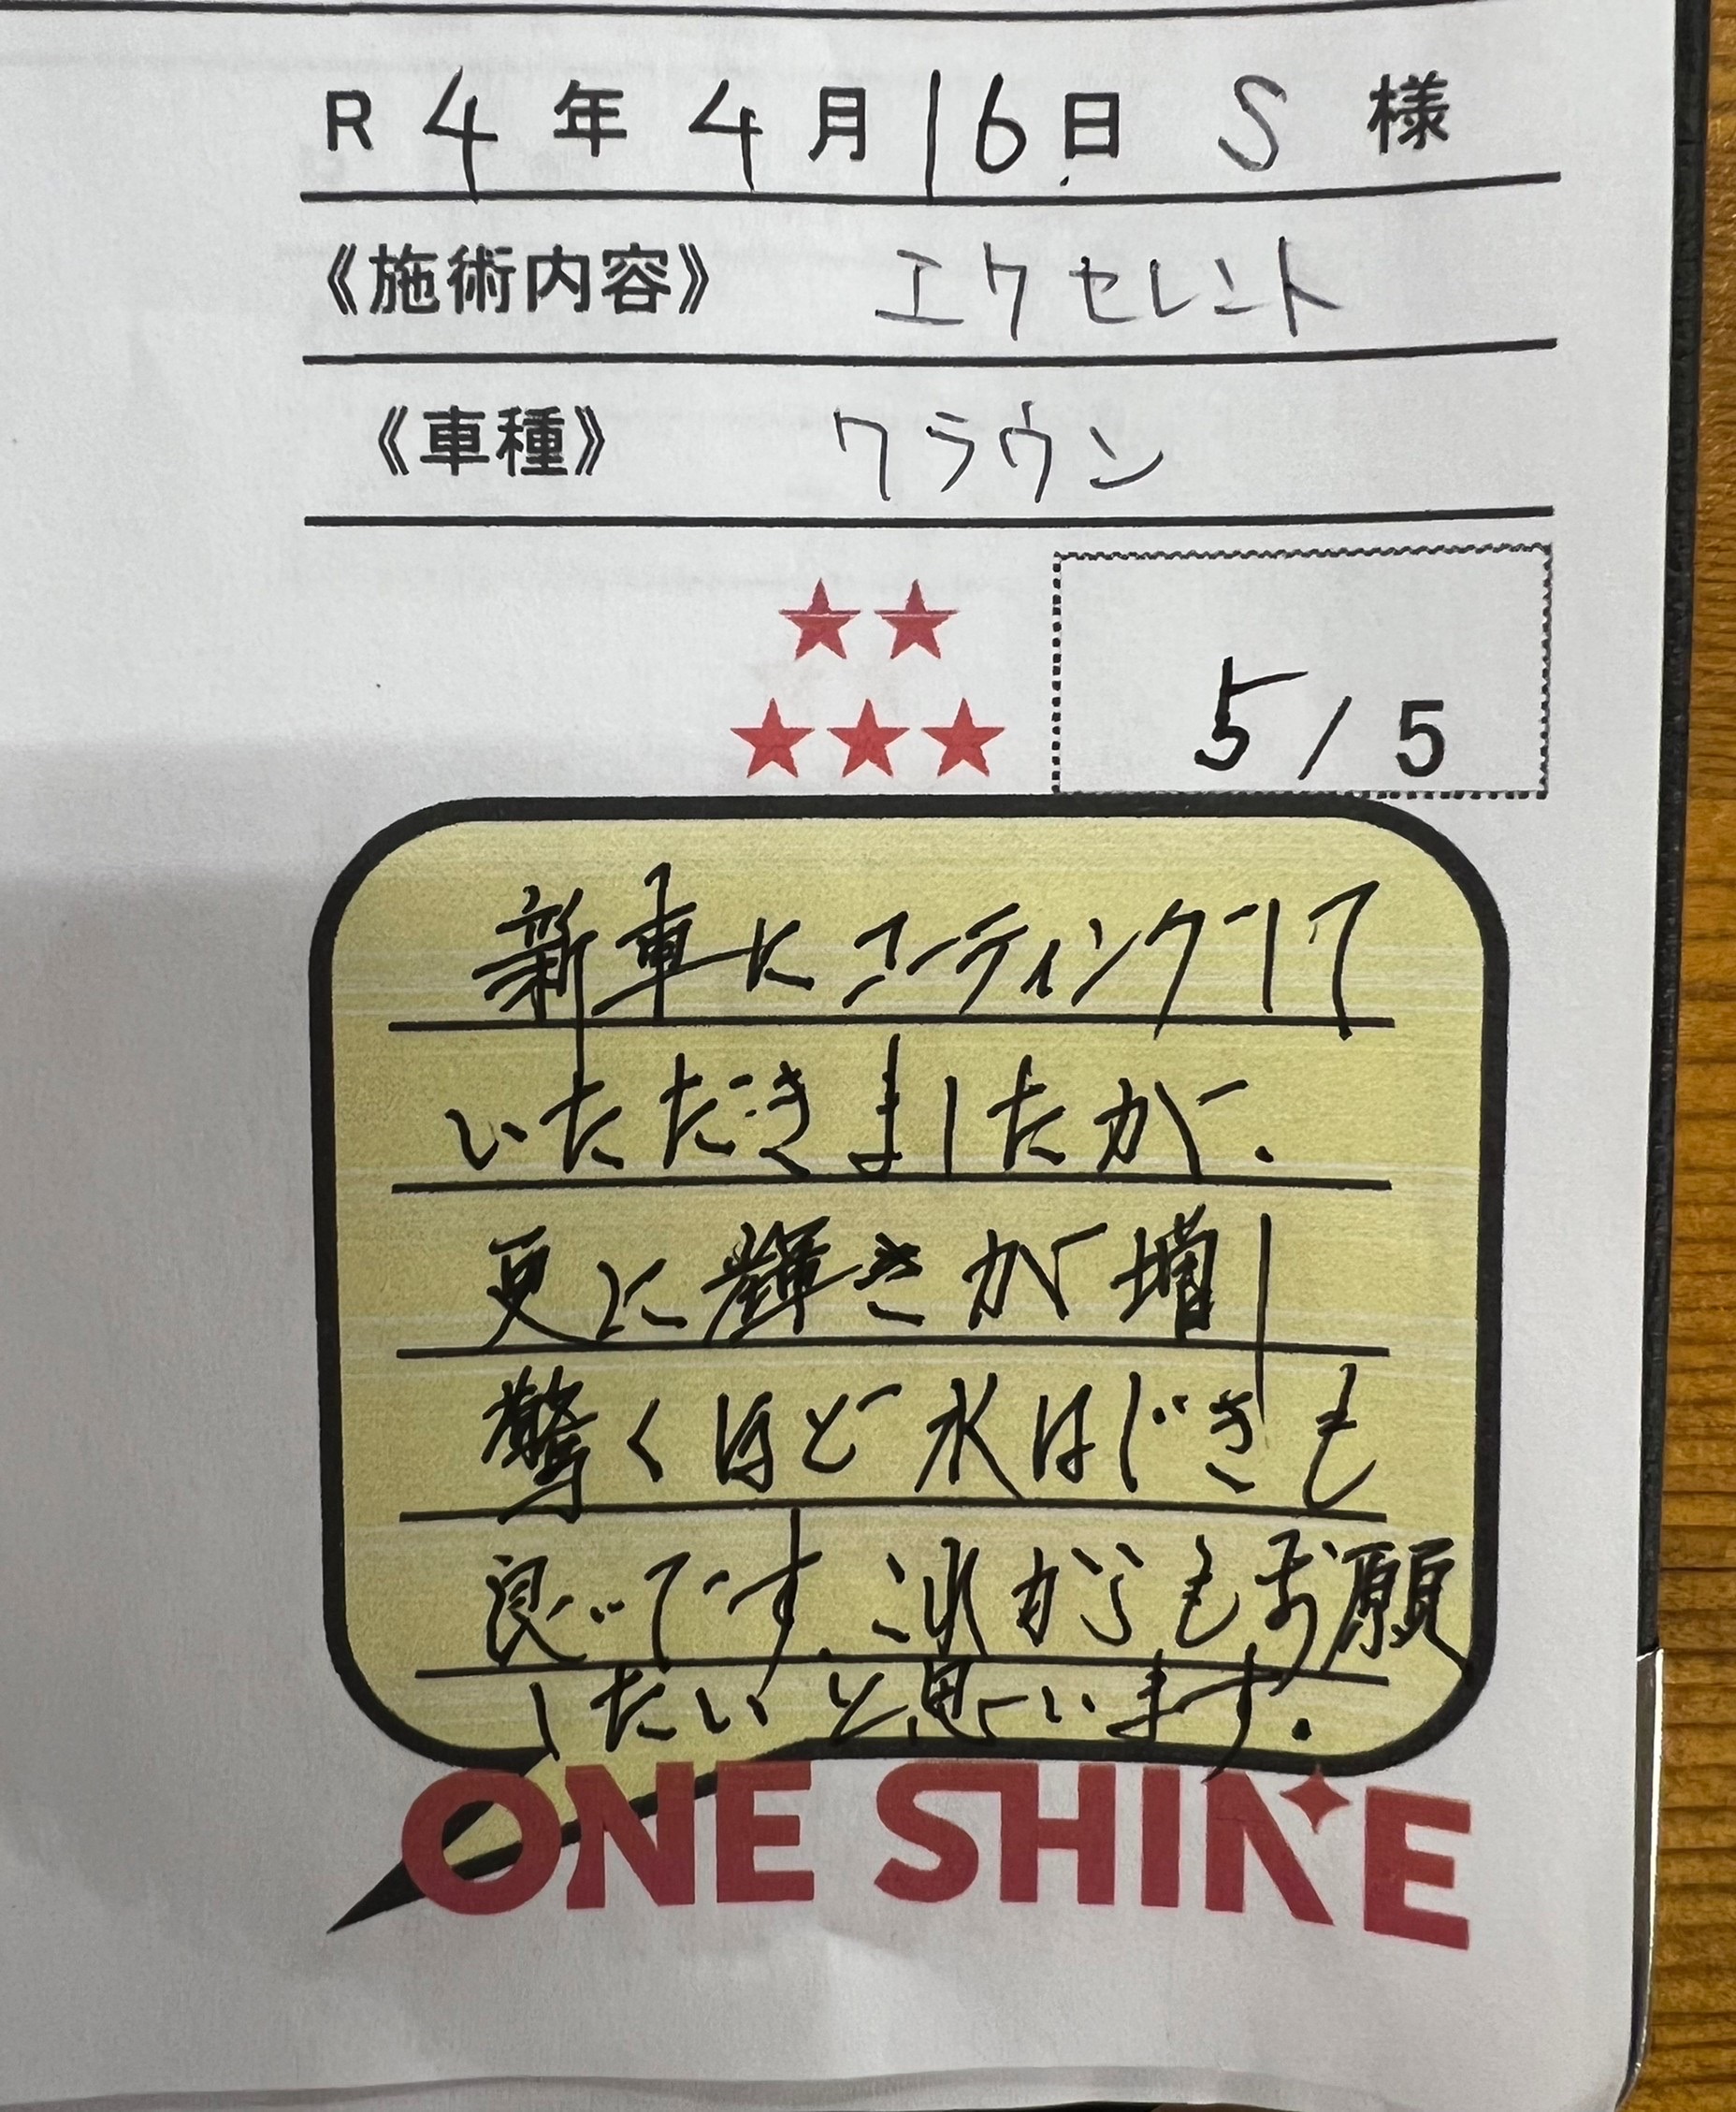 R 4 年 4 月 16 日 S 様
《施術内容》 エクセレント
《車種》 クラウン
★★
★★★
5 / 5
新車にコーティングして
いただきましたが、
更に輝きが増し
驚くほど水はじきも
良いです。これからもお願
したいと思います。
ONE SHINE